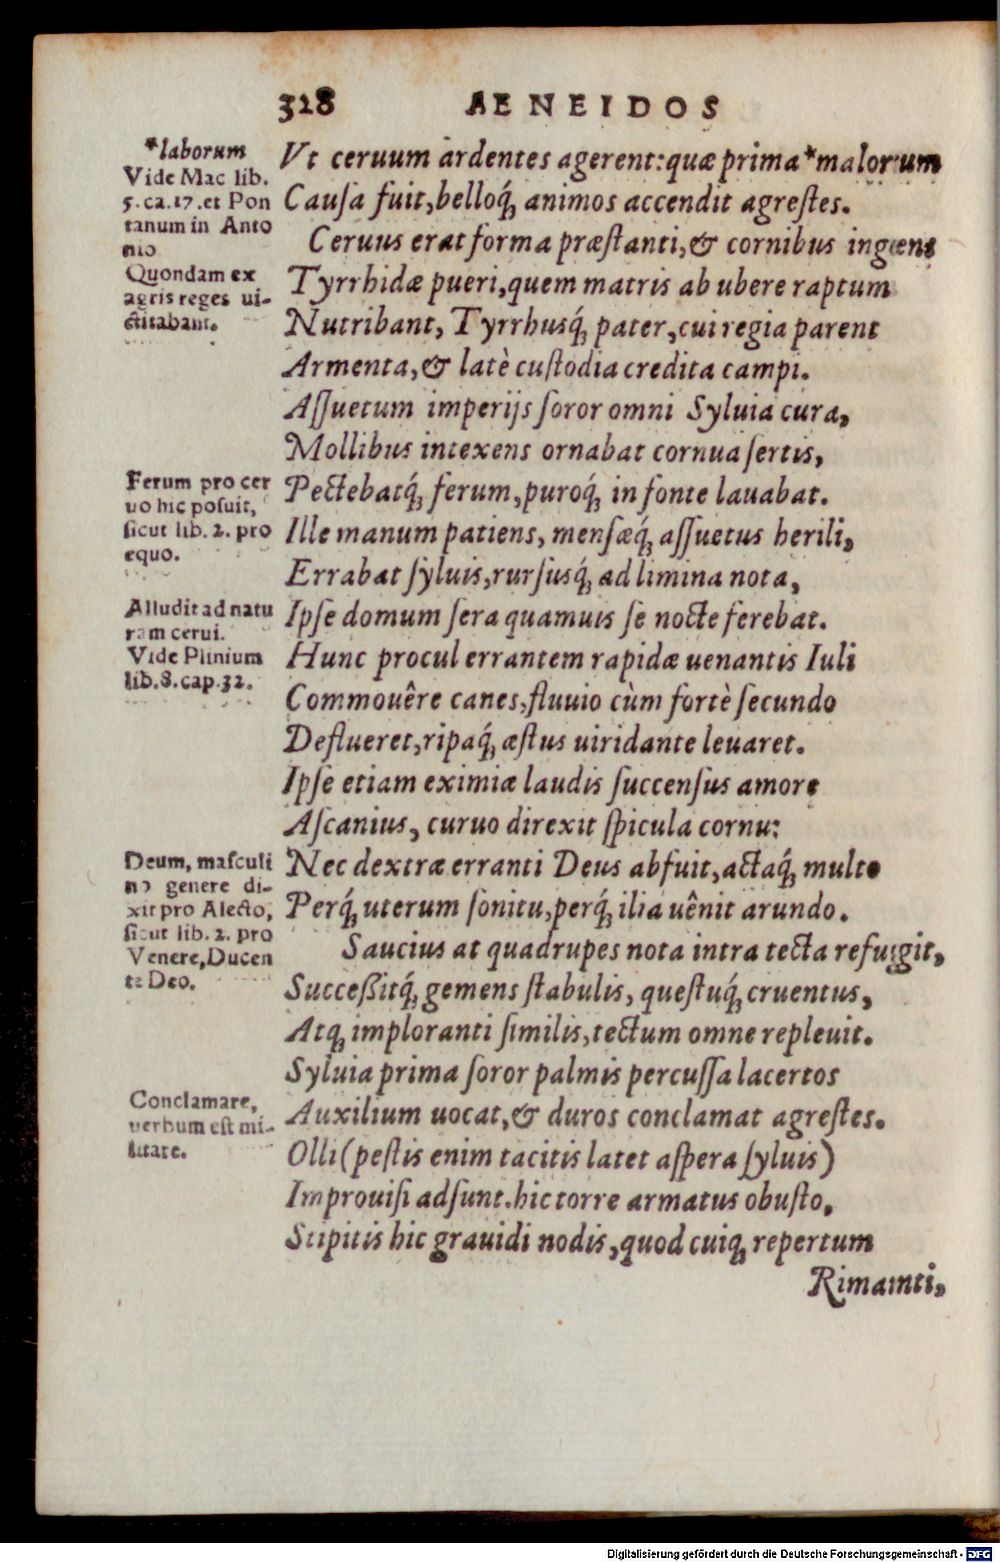 318 AENEIDOS
*laborum
Vide Mac lib.
5.ca.17.et Pon
tanum in Anto
nio
Quondam ex
agris reges ui-
ctitabant.
Vt ceruum ardentes agerent:quæ prima *malorum
Causa fuit,belloq́; animos accendit agrestes.
Ceruus erat forma præstanti,& cornibus ingens
Tyrrhidæ pueri,quem matris ab ubere raptum
Nutribant, Tyrrhusq́; pater,cui regia parent
Armenta,& latè custodia credita campi.
Assuetum imperijs soror omni Syluia cura,
Mollibus intexens ornabat cornua sertis,
Ferum pro cer
uo hic posuit,
sicut lib. 2. pro
equo.
Pectebatq́; ferum,puroq́; in fonte lauabat.
Ille manum patiens, mensæq́; assuetus herili,
Errabat syluis,rursusq́; ad limina nota,
Alludit ad natu
ram cerui.
Vide Plinium
lib.8.cap.32.
Ipse domum sera quamuis se nocte ferebat.
Hunc procul errantem rapidæ uenantis Iuli
Commouêre canes,fluuio cùm fortè secundo
Deflueret,ripaq́; æstus uiridante leuaret.
Ipse etiam eximiæ laudis succensus amore
Ascanius, curuo direxit spicula cornu:
Deum, masculi
no genere di-
xit pro Alecto,
sicut lib. 2. pro
Venere,Ducen
te Deo.
Nec dextræ erranti Deus abfuit,actaq́; multo
Perq́; uterum sonitu,perq́; ilia uênit arundo.
Saucius at quadrupes nota intra tecta refugit,
Successitq́; gemens stabulis, questuq́; cruentus,
Atq; imploranti similis,tectum omne repleuit.
Syluia prima soror palmis percussa lacertos
Conclamare,
uerbum est mi-
litare.
Auxilium uocat,& duros conclamat agrestes.
Olli (pestis enim tacitis latet aspera syluis)
Improuisi adsunt.hic torre armatus obusto,
Stipitis hic grauidi nodis,quod cuiq; repertum
Rimamti,
Digitalisierung gefördert durch die Deutsche Forschungsgemeinschaft - DFG